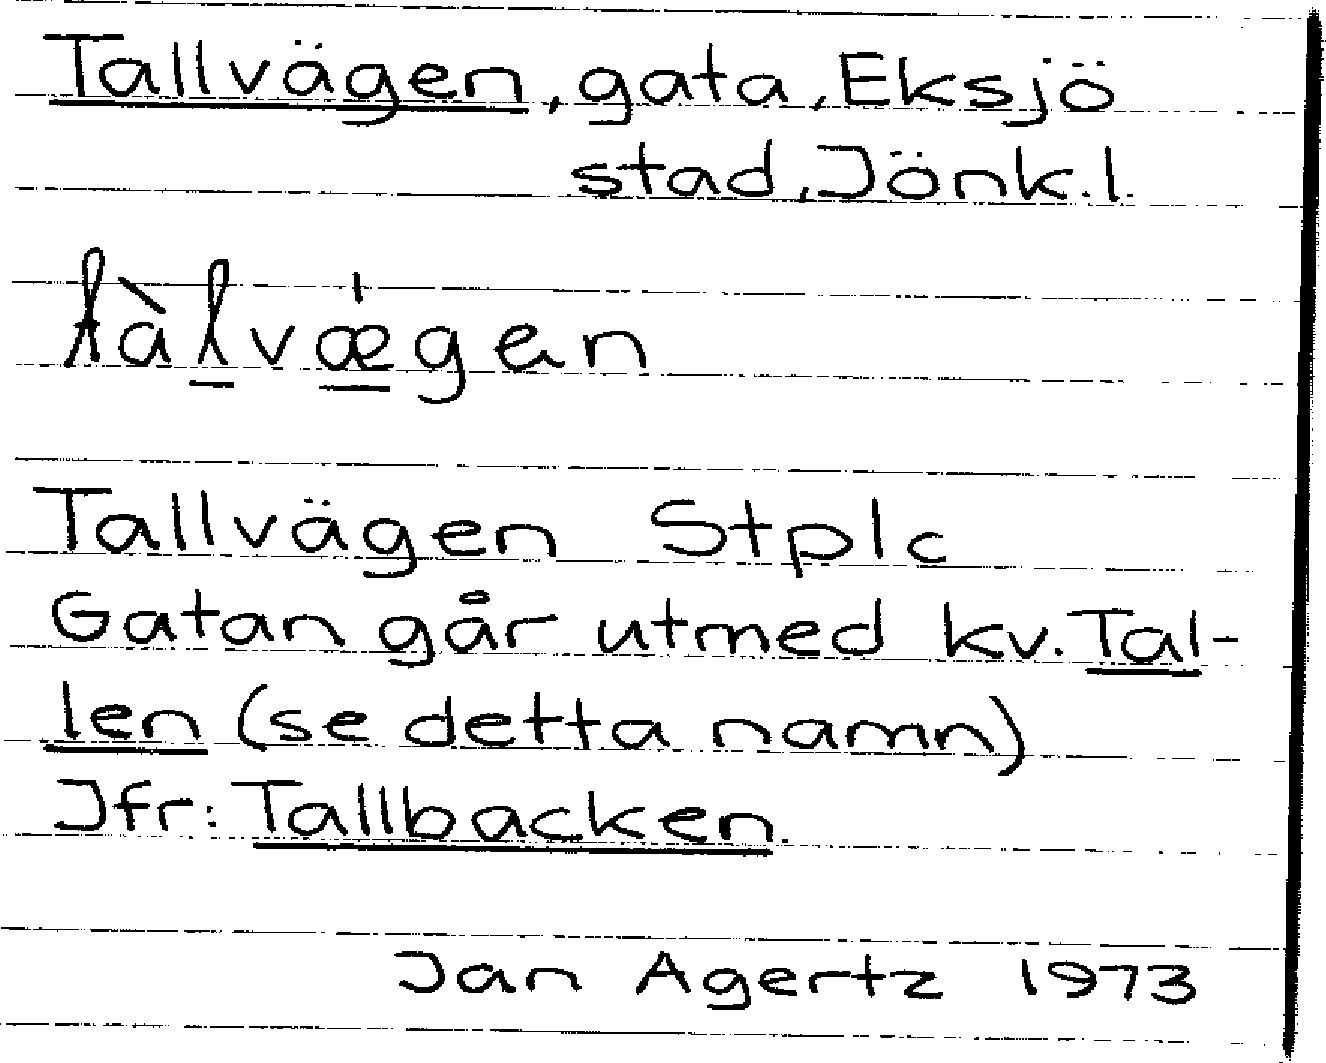 Tallvägen, gata, Eksjö
stad, Jönk. l.
tàlvǽgen
Tallvägen Stplc
Gatan går utmed kv. Tal-
len (se detta namn)
Jfr: Tallbacken.
Jan Agertz 1973